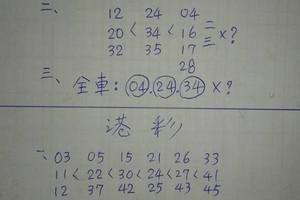 二、 12 24 04
20 < 34 < 16 二三 ×?
32 35 17
28
三、 全車:04.24.34 ×?
港彩
一、 03 05 15 21 26 33
11 < 22 < 30 < 24 < 27 < 41
12 37 42 25 43 45